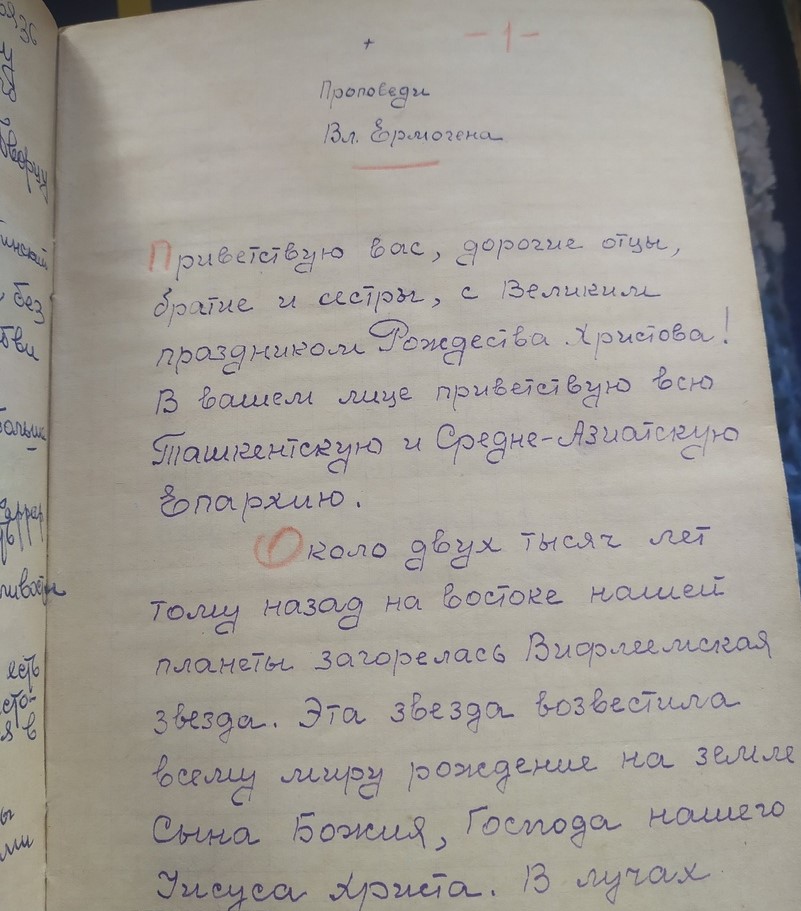 -1-
+
Проповеди
Вл. Ермогена
Приветствую вас, дорогие отцы,
братие и сестры, с Великим
праздником Рождества Христова!
В вашем лице приветствую всю
Ташкентскую и Средне-Азиатскую
Епархию.
Около двух тысяч лет
тому назад на востоке нашей
планеты загорелась Вифлеемская
звезда. Эта звезда возвестила
всему миру рождение на земле
Сына Божия, Господа нашего
Иисуса Христа. В лучах
36
без
есть
сто-
я в